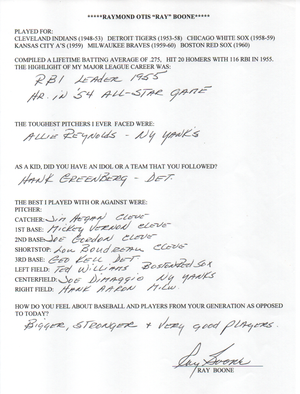 *****RAYMOND OTIS "RAY" BOONE*****
PLAYED FOR:
CLEVELAND INDIANS (1948-53) DETROIT TIGERS (1953-58) CHICAGO WHITE SOX (1958-59)
KANSAS CITY A'S (1959) MILWAUKEE BRAVES (1959-60) BOSTON RED SOX (1960)
COMPILED A LIFETIME BATTING AVERAGE OF .275, HIT 20 HOMERS WITH 116 RBI IN 1955.
THE HIGHLIGHT OF MY MAJOR LEAGUE CAREER WAS:
RBI LEADER 1955
H.R. IN '54 ALL-STAR GAME
THE TOUGHEST PITCHERS I EVER FACED WERE:
ALLIE REYNOLDS - NY YANKS
AS A KID, DID YOU HAVE AN IDOL OR A TEAM THAT YOU FOLLOWED?
HANK GREENBERG - DET.
THE BEST I PLAYED WITH OR AGAINST WERE:
PITCHER:
CATCHER: JIM HEGAN CLEVE
1ST BASE: MICKEY VERNON CLEVE
2ND BASE: JOE GORDON CLEVE
SHORTSTOP: LOU BOUDREAU CLEVE
3RD BASE: GEO KELL DET
LEFT FIELD: TED WILLIAMS BOSTON RED SOX
CENTERFIELD: JOE DIMAGGIO NY YANKS
RIGHT FIELD: HANK AARON MILW.
HOW DO YOU FEEL ABOUT BASEBALL AND PLAYERS FROM YOUR GENERATION AS OPPOSED
TO TODAY?
BIGGER, STRONGER & VERY GOOD PLAYERS.
Ray Boone
RAY BOONE